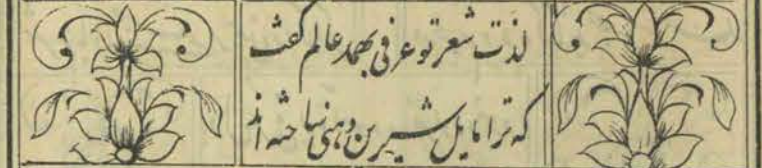 لذت شعر تو عرفی بهمه عالم گفت
که ترا مایل شیرین دهنی ساخته‌اند